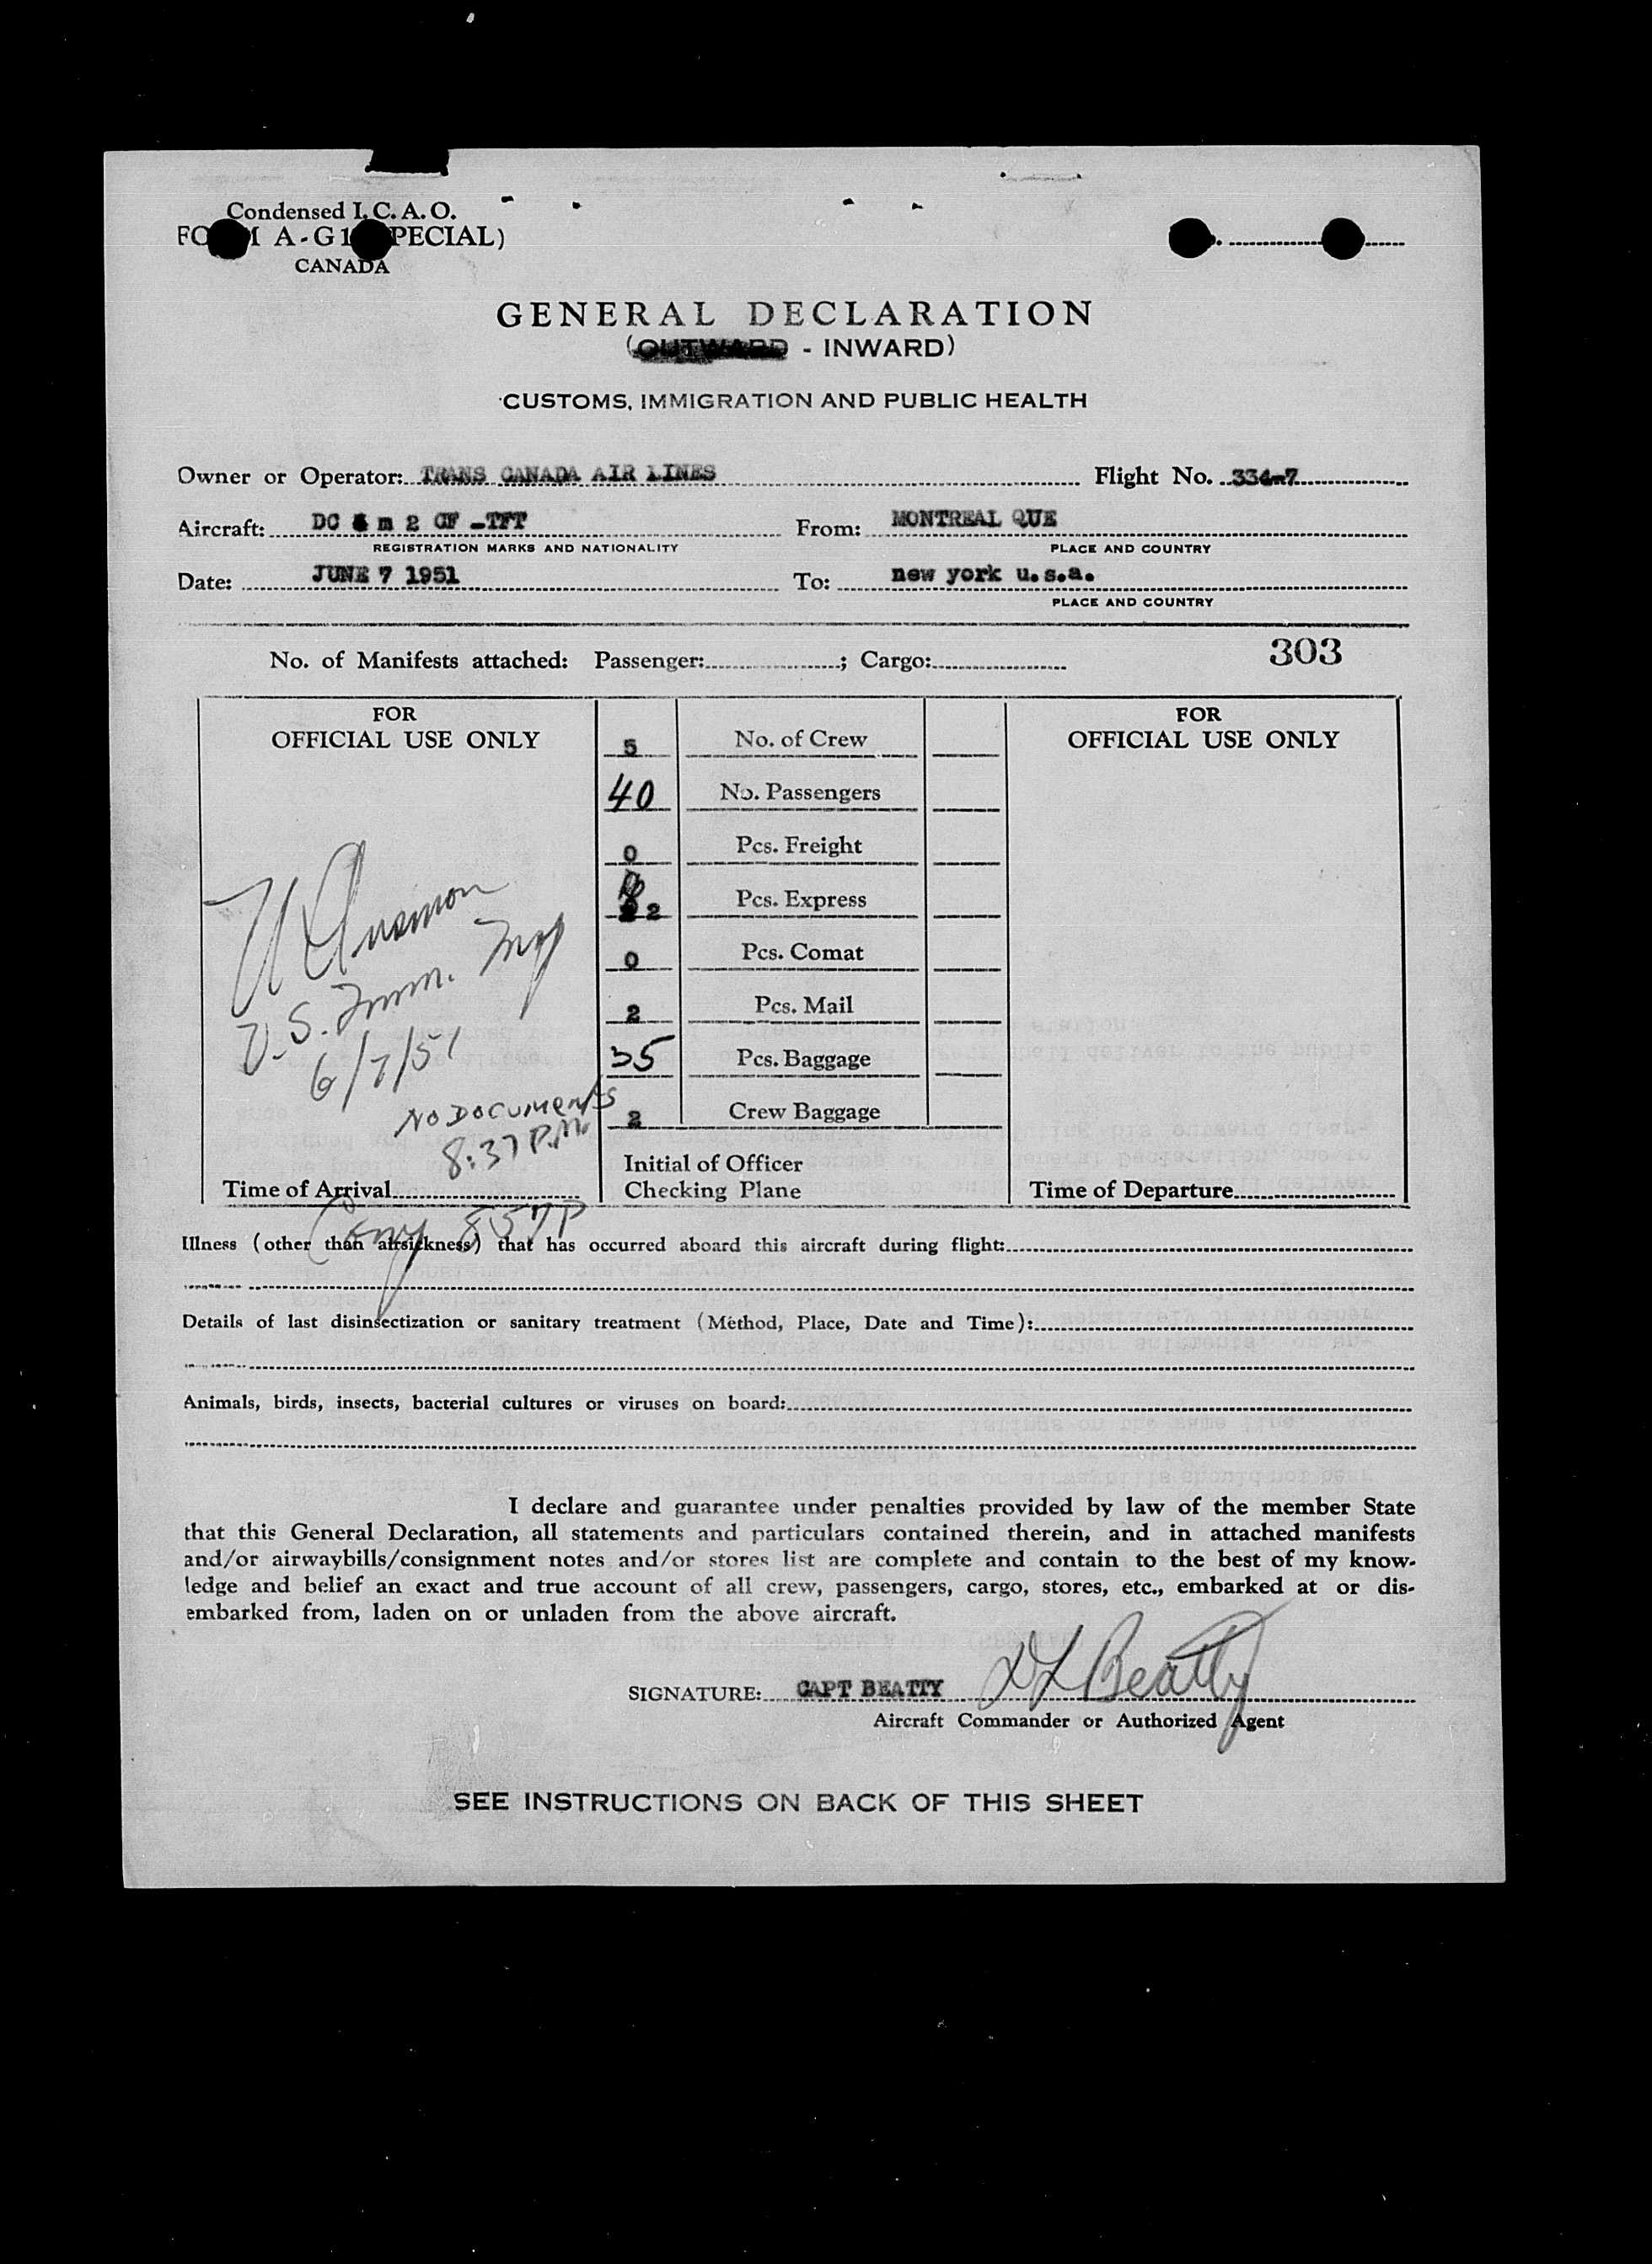 Condensed I.C.A.O.
FORM A-G1 (SPECIAL)
CANADA
GENERAL DECLARATION
(OUTWARD - INWARD)
CUSTOMS, IMMIGRATION AND PUBLIC HEALTH
Owner or Operator: TRANS CANADA AIR LINES Flight No. 334-7
Aircraft: DC 4 m 2 CF -TFT From: MONTREAL QUE
REGISTRATION MARKS AND NATIONALITY PLACE AND COUNTRY
Date: JUNE 7 1951 To: new york u.s.a.
PLACE AND COUNTRY
No. of Manifests attached: Passenger: ; Cargo: 303
FOR FOR
OFFICIAL USE ONLY OFFICIAL USE ONLY
5 No. of Crew
40 No. Passengers
0 Pcs. Freight
2 Pcs. Express
0 Pcs. Comat
2 Pcs. Mail
35 Pcs. Baggage
2 Crew Baggage
U.S. Imm. Insp
6/7/51
NO DOCUMENTS
8:37 P.M.
Initial of Officer
Checking Plane
Time of Arrival Time of Departure
857P
Illness (other than airsickness) that has occurred aboard this aircraft during flight:
Details of last disinsectization or sanitary treatment (Method, Place, Date and Time):
Animals, birds, insects, bacterial cultures or viruses on board:
I declare and guarantee under penalties provided by law of the member State
that this General Declaration, all statements and particulars contained therein, and in attached manifests
and/or airwaybills/consignment notes and/or stores list are complete and contain to the best of my know-
ledge and belief an exact and true account of all crew, passengers, cargo, stores, etc., embarked at or dis-
embarked from, laden on or unladen from the above aircraft.
SIGNATURE: CAPT BEATTY DL Beatty
Aircraft Commander or Authorized Agent
SEE INSTRUCTIONS ON BACK OF THIS SHEET